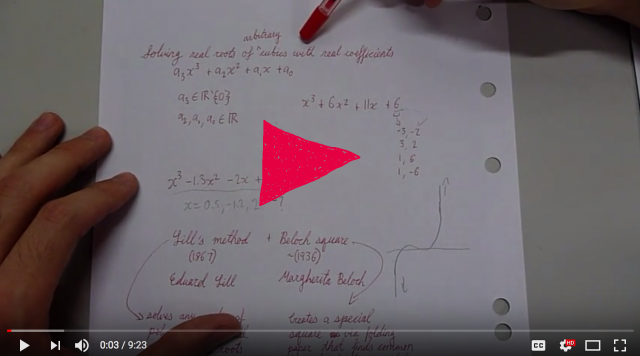 arbitrary
Solving real roots of ^ cubics with real coefficients
a₃x³ + a₂x² + a₁x + a₀
a₃ ∈ ℝ\{0}
a₂, a₁, a₀ ∈ ℝ
x³ + 6x² + 11x + 6
-3, -2 ✓
3, 2
1, 6
1, -6
x³ - 1.3x² - 2x +
x = 0.5, -1.1, 2 ?
Lill's method + Beloch square
(1867) ~(1936)
Eduard Lill Margherita Beloch
solves any
creates a special
square via folding
paper that finds common
roots
0:03 / 9:23
CC
HD